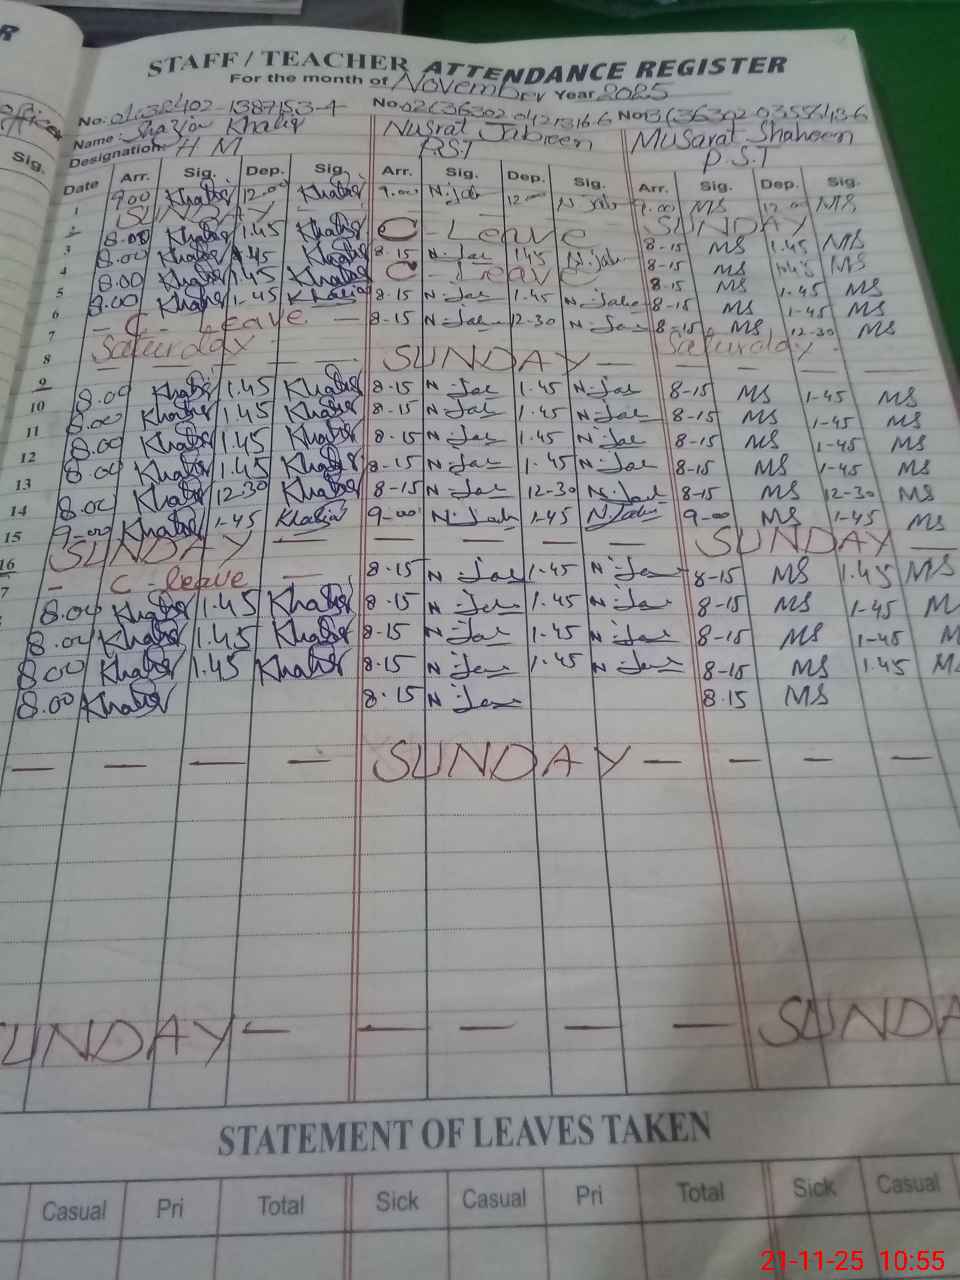 R
STAFF / TEACHER ATTENDANCE REGISTER
For the month of November Year 2025
officer
No. No. No.
Name: Shazia Khaliq Nusrat Jabeen Musarat Shaheen
Designation: H M P.S.T P.S.T
Sig. Date Arr. Sig. Dep. Sig. Arr. Sig. Dep. Sig. Arr. Sig. Dep. Sig.
1 9.00 Khaliq 12.00 Khaliq 9.00 N.Jab 12 N Jab 9.00 MS 12.00 MS
2 SUNDAY — — — — — — SUNDAY
3 8.00 Khaliq 1.45 Khaliq C - Leave 8-15 MS 1.45 MS
4 8.00 Khaliq 1.45 Khaliq 8-15 N.Jab 1.45 N.Jab 8-15 MS 1.45 MS
5 8.00 Khaliq 1.45 Khaliq C - Leave 8-15 MS 1-45 MS
6 8.00 Khaliq 1-45 Khaliq 8-15 N.Jab 1.45 N.Jab 8-15 MS 1-45 MS
7 — C - Leave — 8-15 N.Jab 12-30 N.Jab 8-15 MS 12-30 MS
8 Saturday — — Saturday
9 — — — — SUNDAY — — — — —
10 8.00 Khaliq 1.45 Khaliq 8-15 N.Jab 1.45 N.Jab 8-15 MS 1-45 MS
11 8.00 Khaliq 1.45 Khaliq 8-15 N.Jab 1.45 N.Jab 8-15 MS 1-45 MS
12 8.00 Khaliq 1.45 Khaliq 8-15 N.Jab 1.45 N.Jab 8-15 MS 1-45 MS
13 8.00 Khaliq 1.45 Khaliq 8-15 N.Jab 1.45 N.Jab 8-15 MS 1-45 MS
14 8.00 Khaliq 12-30 Khaliq 8-15 N.Jab 12-30 N.Jab 8-15 MS 12-30 MS
15 9-00 Khaliq 1-45 Khaliq 9-00 N.Jab 1-45 N Jab 9-00 MS 1-45 MS
16 SUNDAY — — — — — SUNDAY —
7 — C - leave — 8.15 N.Jab 1.45 N.Jab 8-15 MS 1.45 MS
8.00 Khaliq 1.45 Khaliq 8.15 N.Jab 1.45 N.Jab 8-15 MS 1-45 M
8.00 Khaliq 1.45 Khaliq 8-15 N.Jab 1-45 N.Jab 8-15 MS 1-45 M
8.00 Khaliq 1.45 Khaliq 8.15 N.Jab 1.45 N.Jab 8-15 MS 1.45 M
8.00 Khaliq 8.15 N.Jab 8.15 MS
— — — — SUNDAY — — — —
SUNDAY — — — — — SUNDA
STATEMENT OF LEAVES TAKEN
Casual Pri Total Sick Casual Pri Total Sick Casual
21-11-25 10:55